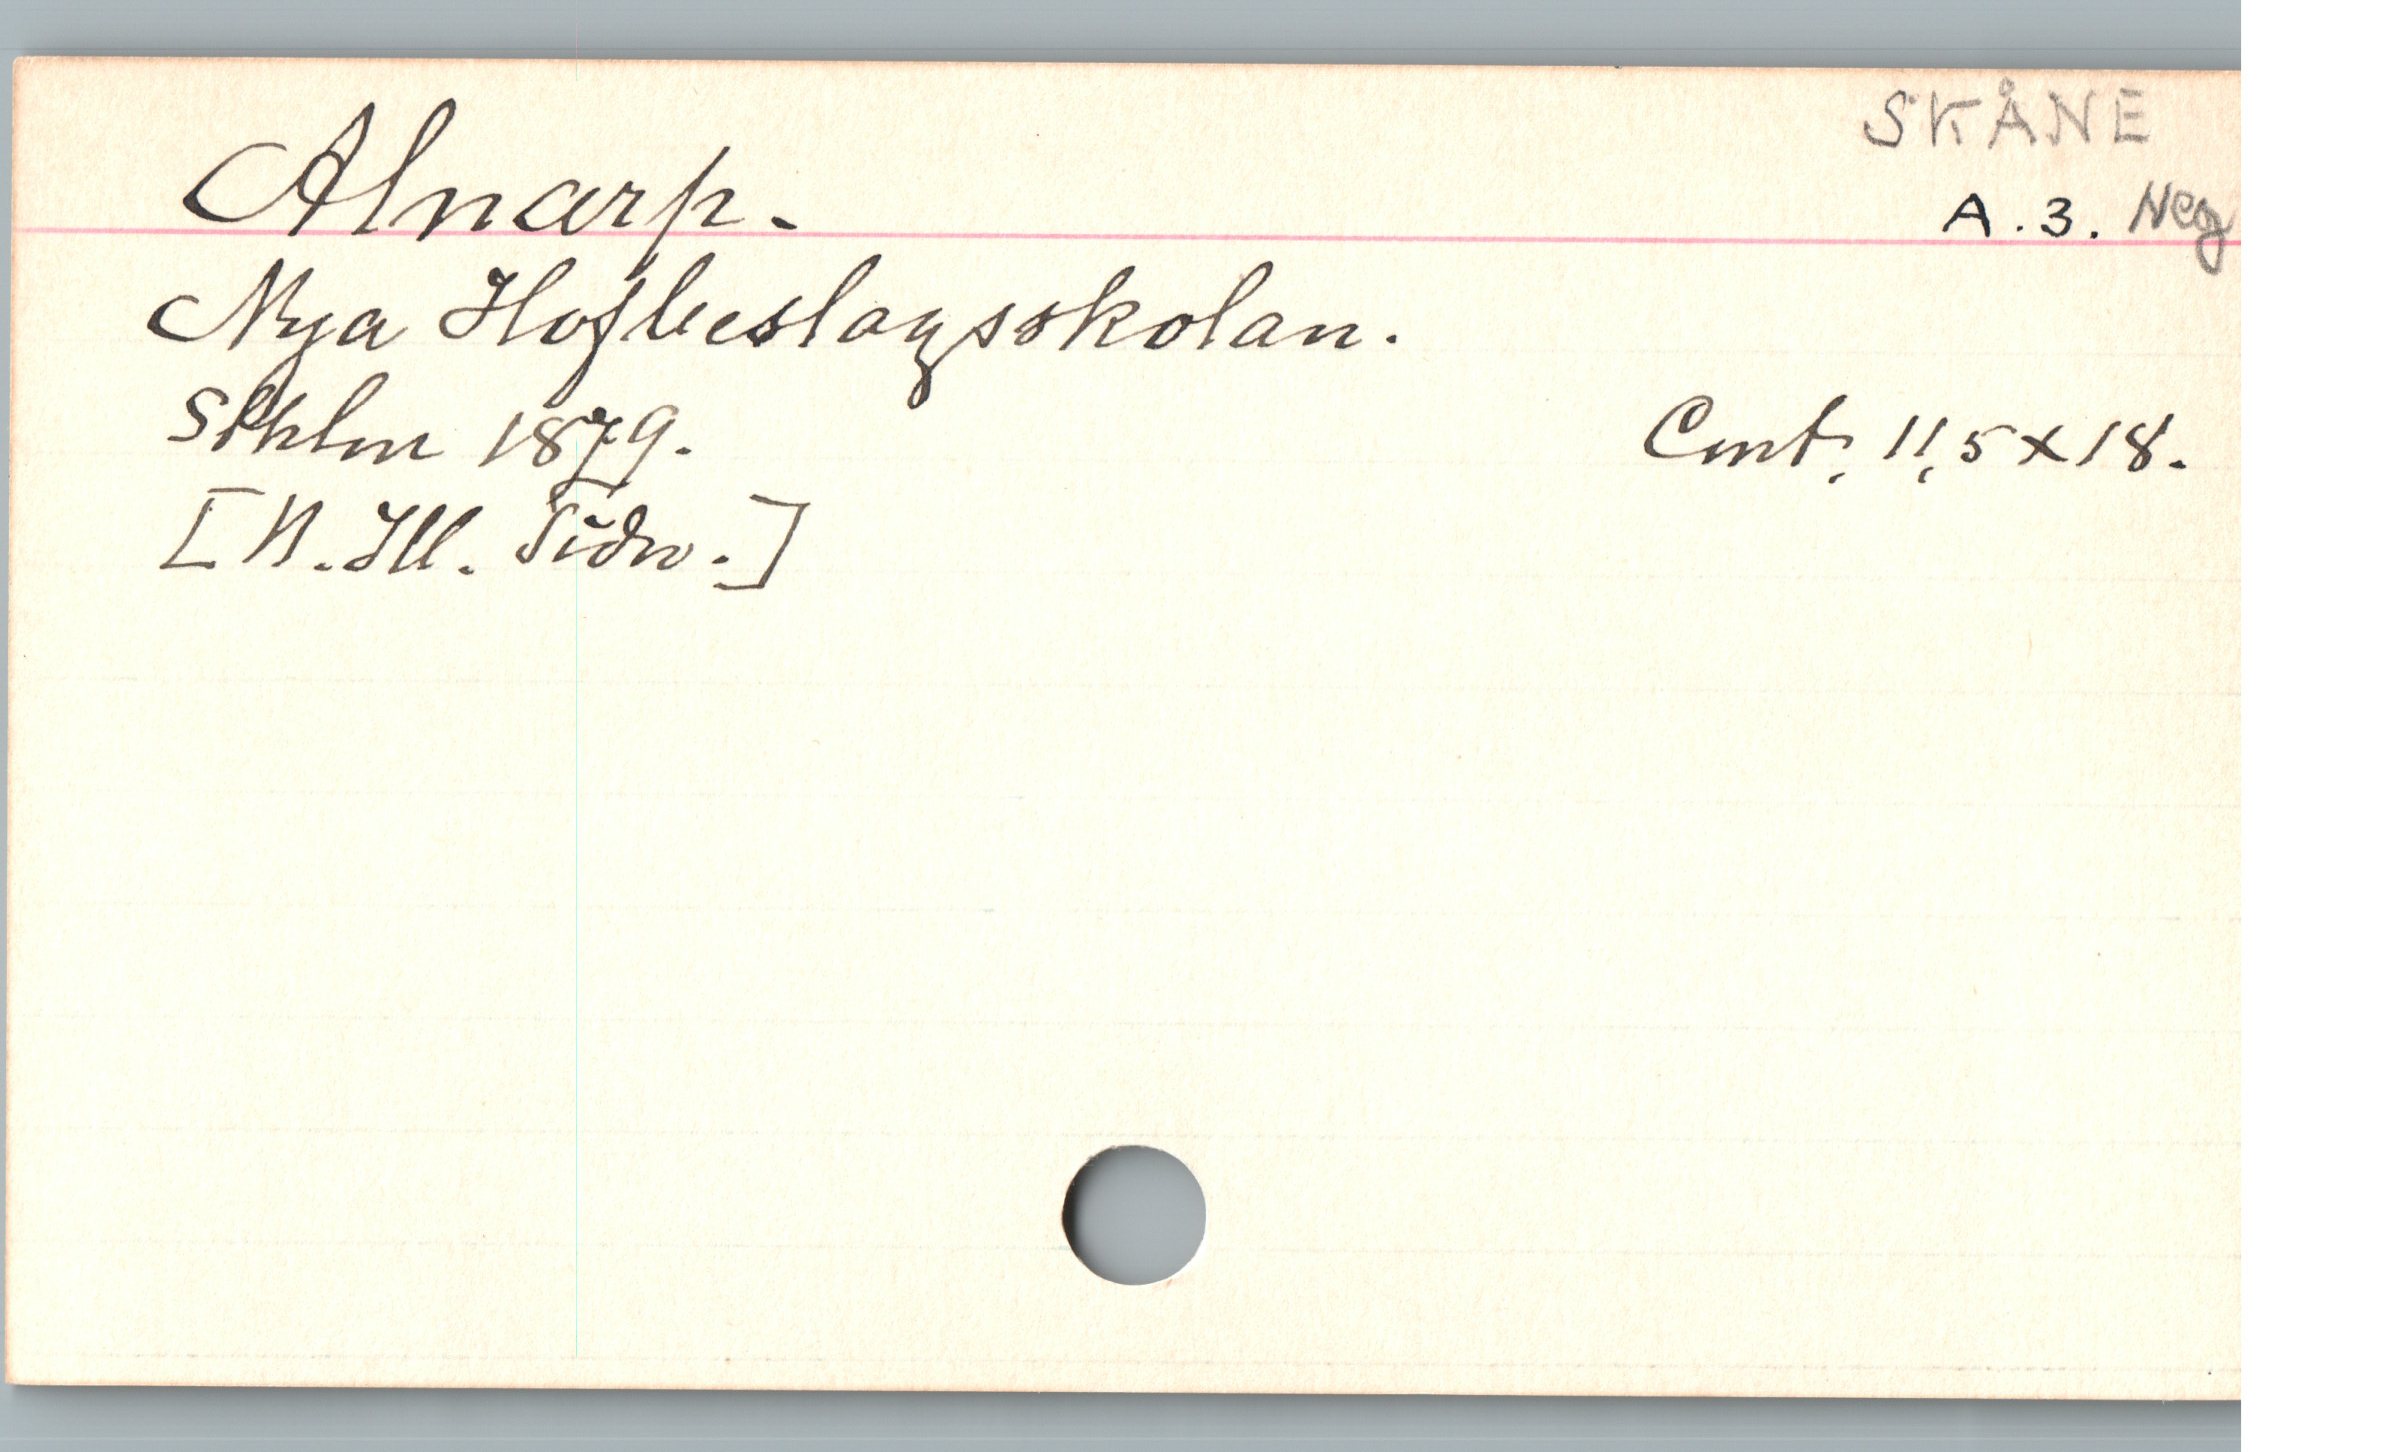 SKÅNE
Alnarp. A.3. Neg
Nya Hofbeslagsskolan.
Sthlm 1879. Cmt. 11,5x18.
[N. Ill. Tidn.]